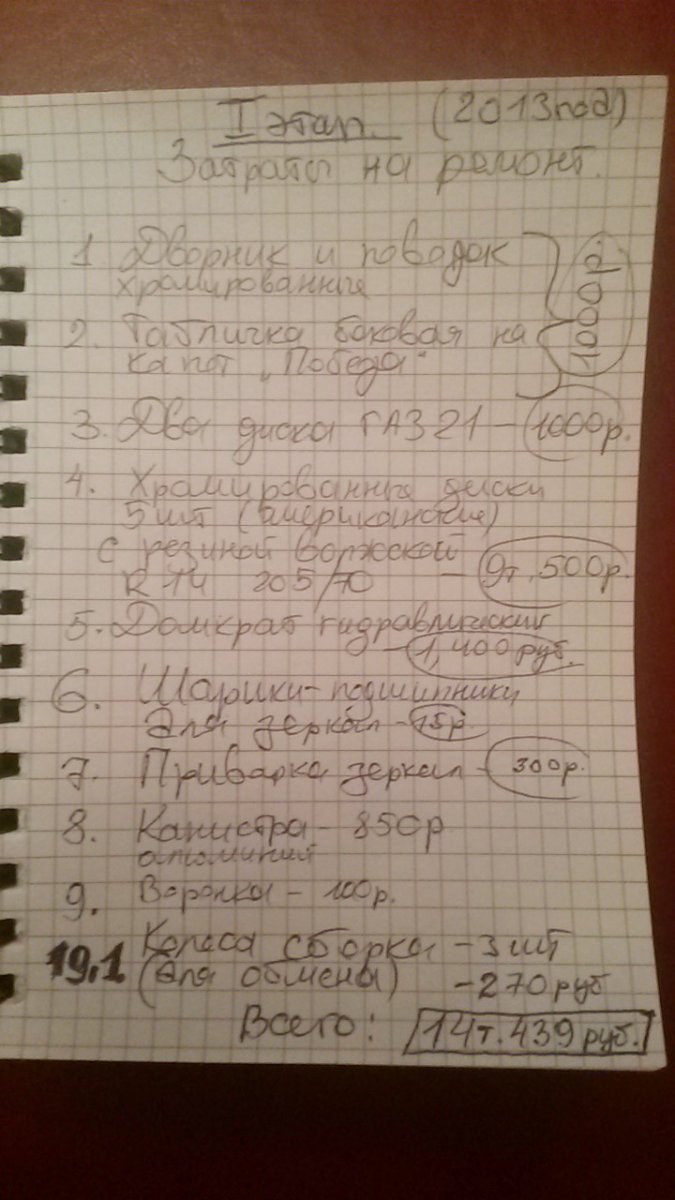 I этап. (2013 год)
Затраты на ремонт.
1 Дворник и поводок
хромированные
2. Табличка боковая на
капот „Победа"
1000 р.
3. Два диска ГАЗ 21 – 1000р.
4. Хромированные диски
5 шт (американские)
с резиной волжской
R 14 205/70 – 9т. 500р.
5. Домкрат гидравлический
– 1,400 руб.
6. Шарики-подшипники
для зеркал – 15р.
7. Приварка зеркал – 300р.
8. Канистра – 850р
алюминий
9. Воронка – 100р.
19.1 Колеса сборка – 3 шт
(для обмена) – 270 руб
Всего: 14т. 439 руб.